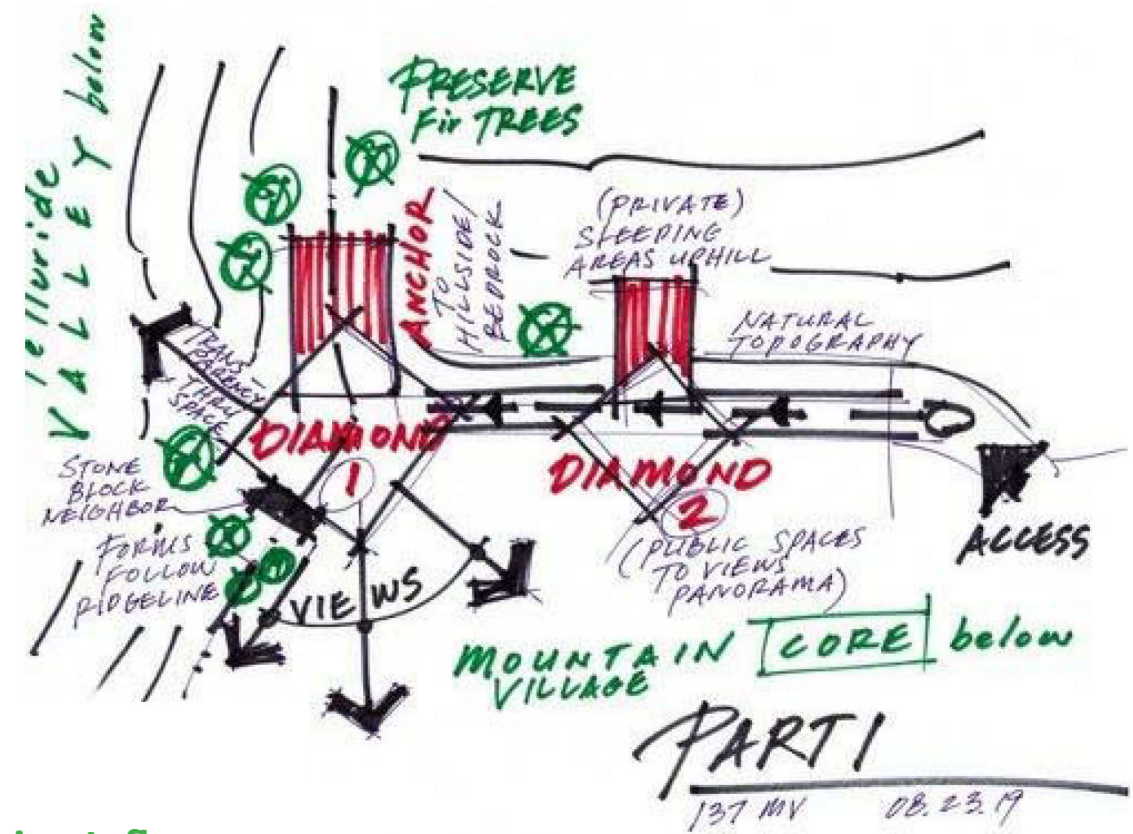 Telluride
VALLEY below
PRESERVE
Fir TREES
ANCHOR
TO
HILLSIDE/
BEDROCK
(PRIVATE)
SLEEPING
AREAS UPHILL
NATURAL
TOPOGRAPHY
TRANS
PARENCY
THRU
SPACE
DIAMOND
1
DIAMOND
2
STONE
BLOCK
NEIGHBOR
FORMS
FOLLOW
RIDGELINE
VIEWS
(PUBLIC SPACES
TO VIEWS
PANORAMA)
ACCESS
MOUNTAIN CORE below
VILLAGE
PARTI
137 MV 08.23.19